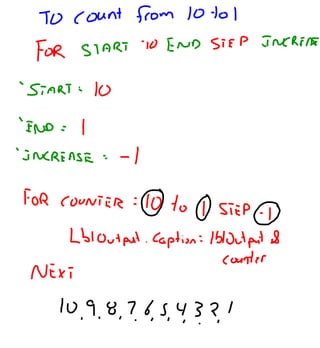 TO count from 10 to 1
FOR START TO END STEP INCREASE
'START = 10
'END = 1
'INCREASE = -1
FOR COUNTER = 10 to 1 STEP -1
LblOutput.Caption = lblOutput &
counter
NEXT
10,9,8,7,6,5,4,3,2,1